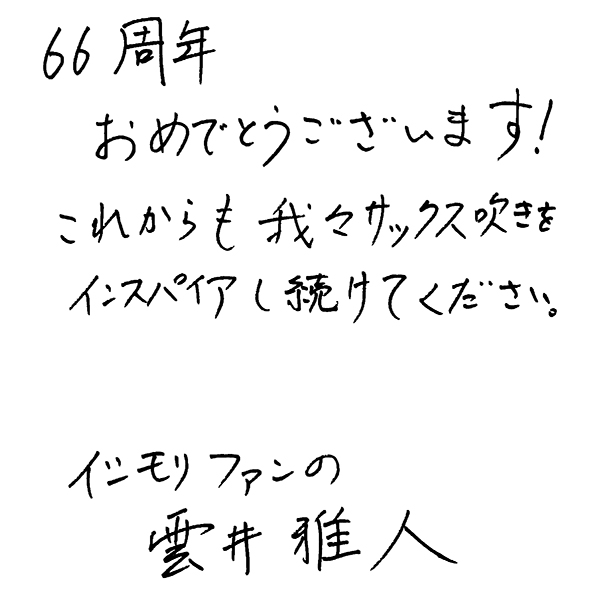 66周年
おめでとうございます!
これからも我々サックス吹きを
インスパイアし続けてください。
イシモリファンの
雲井雅人